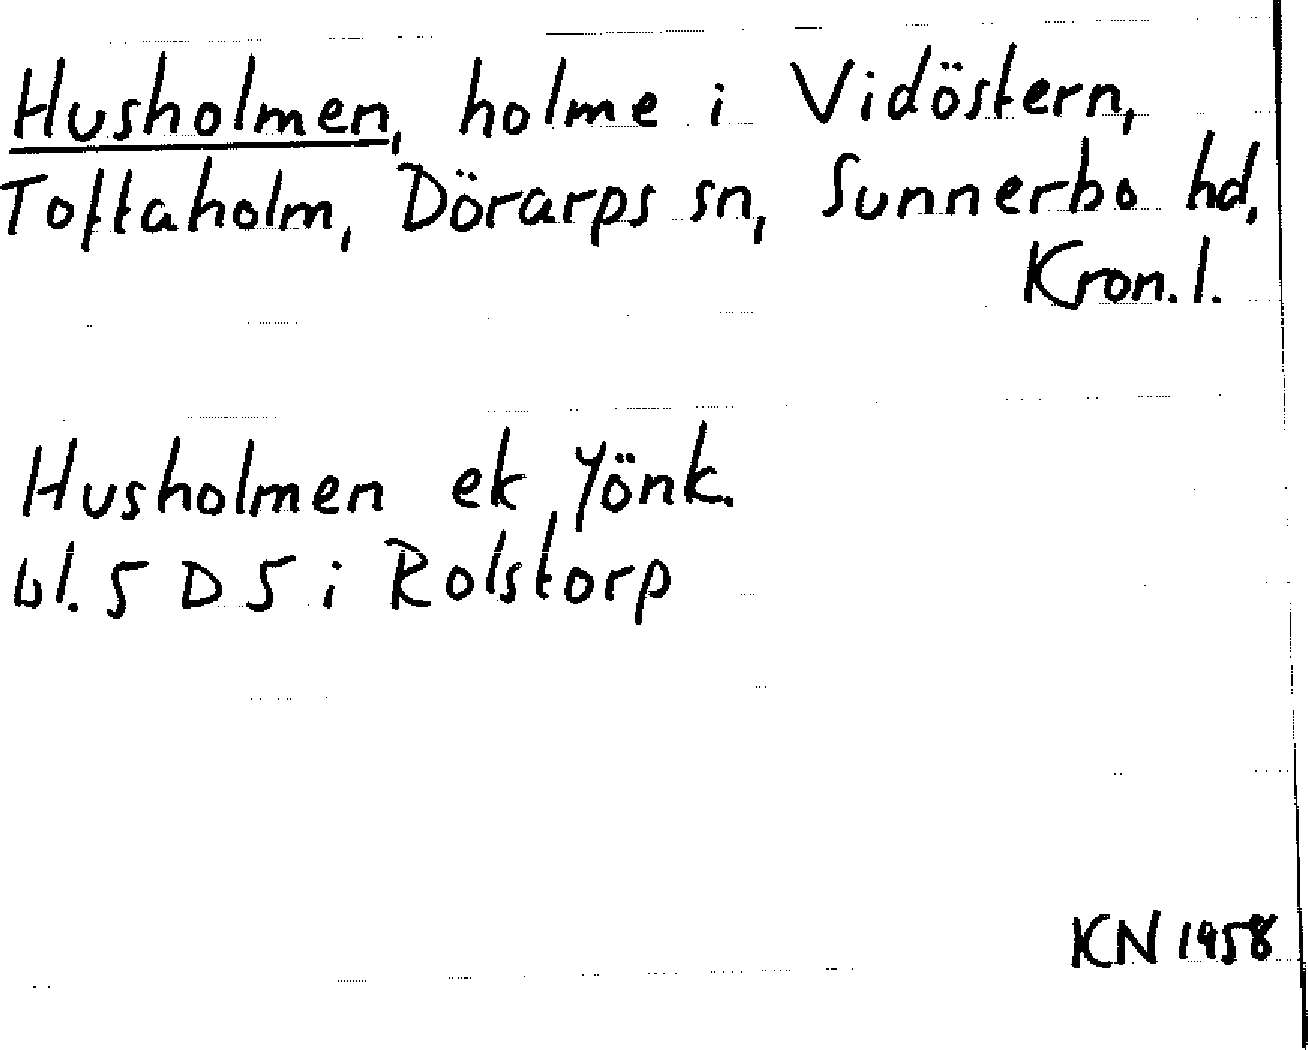 Husholmen, holme i Vidöstern,
Toftaholm, Dörarps sn, Sunnerbo hd,
Kron.l.
Husholmen ek Jönk.
bl. 5 D 5 i Rolstorp
KN 1958